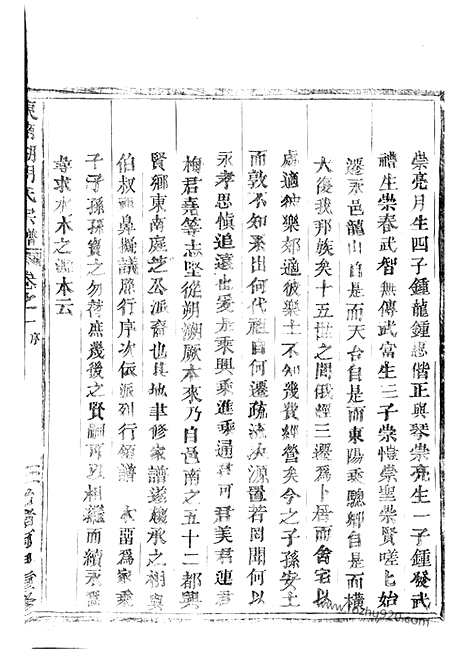 崇亮月生四子鍾龍鍾㥁偕正與琴崇亮生一子鍾發武
禮生崇春武智無傳武富生三子崇愷崇聖崇賢嗟乚始
遷永邑龍山自是而天台自是而東陽乘驄鄉自是而橫
大後我那族矣十五世之間俄經三遷爲卜居而舍宅以
處適彼樂郊適彼樂土不知幾費經營矣今之子孫安土
而敦不知系出何代祖自何遷疏流決源置若罔聞何以
永孝思慎追遠也爰於乘興乘進乘通君可君美君連君
梅君堯等志堅從朔溯厥本來乃自邑南之五十二都興
賢鄉東南庭芝公派裔也具地聿修家譜遂機承之相與
伯叔昆鼻擬議原行序次依派列行領譜 永畱爲家乘
子子孫孫寶之勿荐庶幾後之賢嗣可以相繼而續永爲
尋求水木之源本云
東 湖胡氏宗譜 卷之一 序
www.fozhu920.com